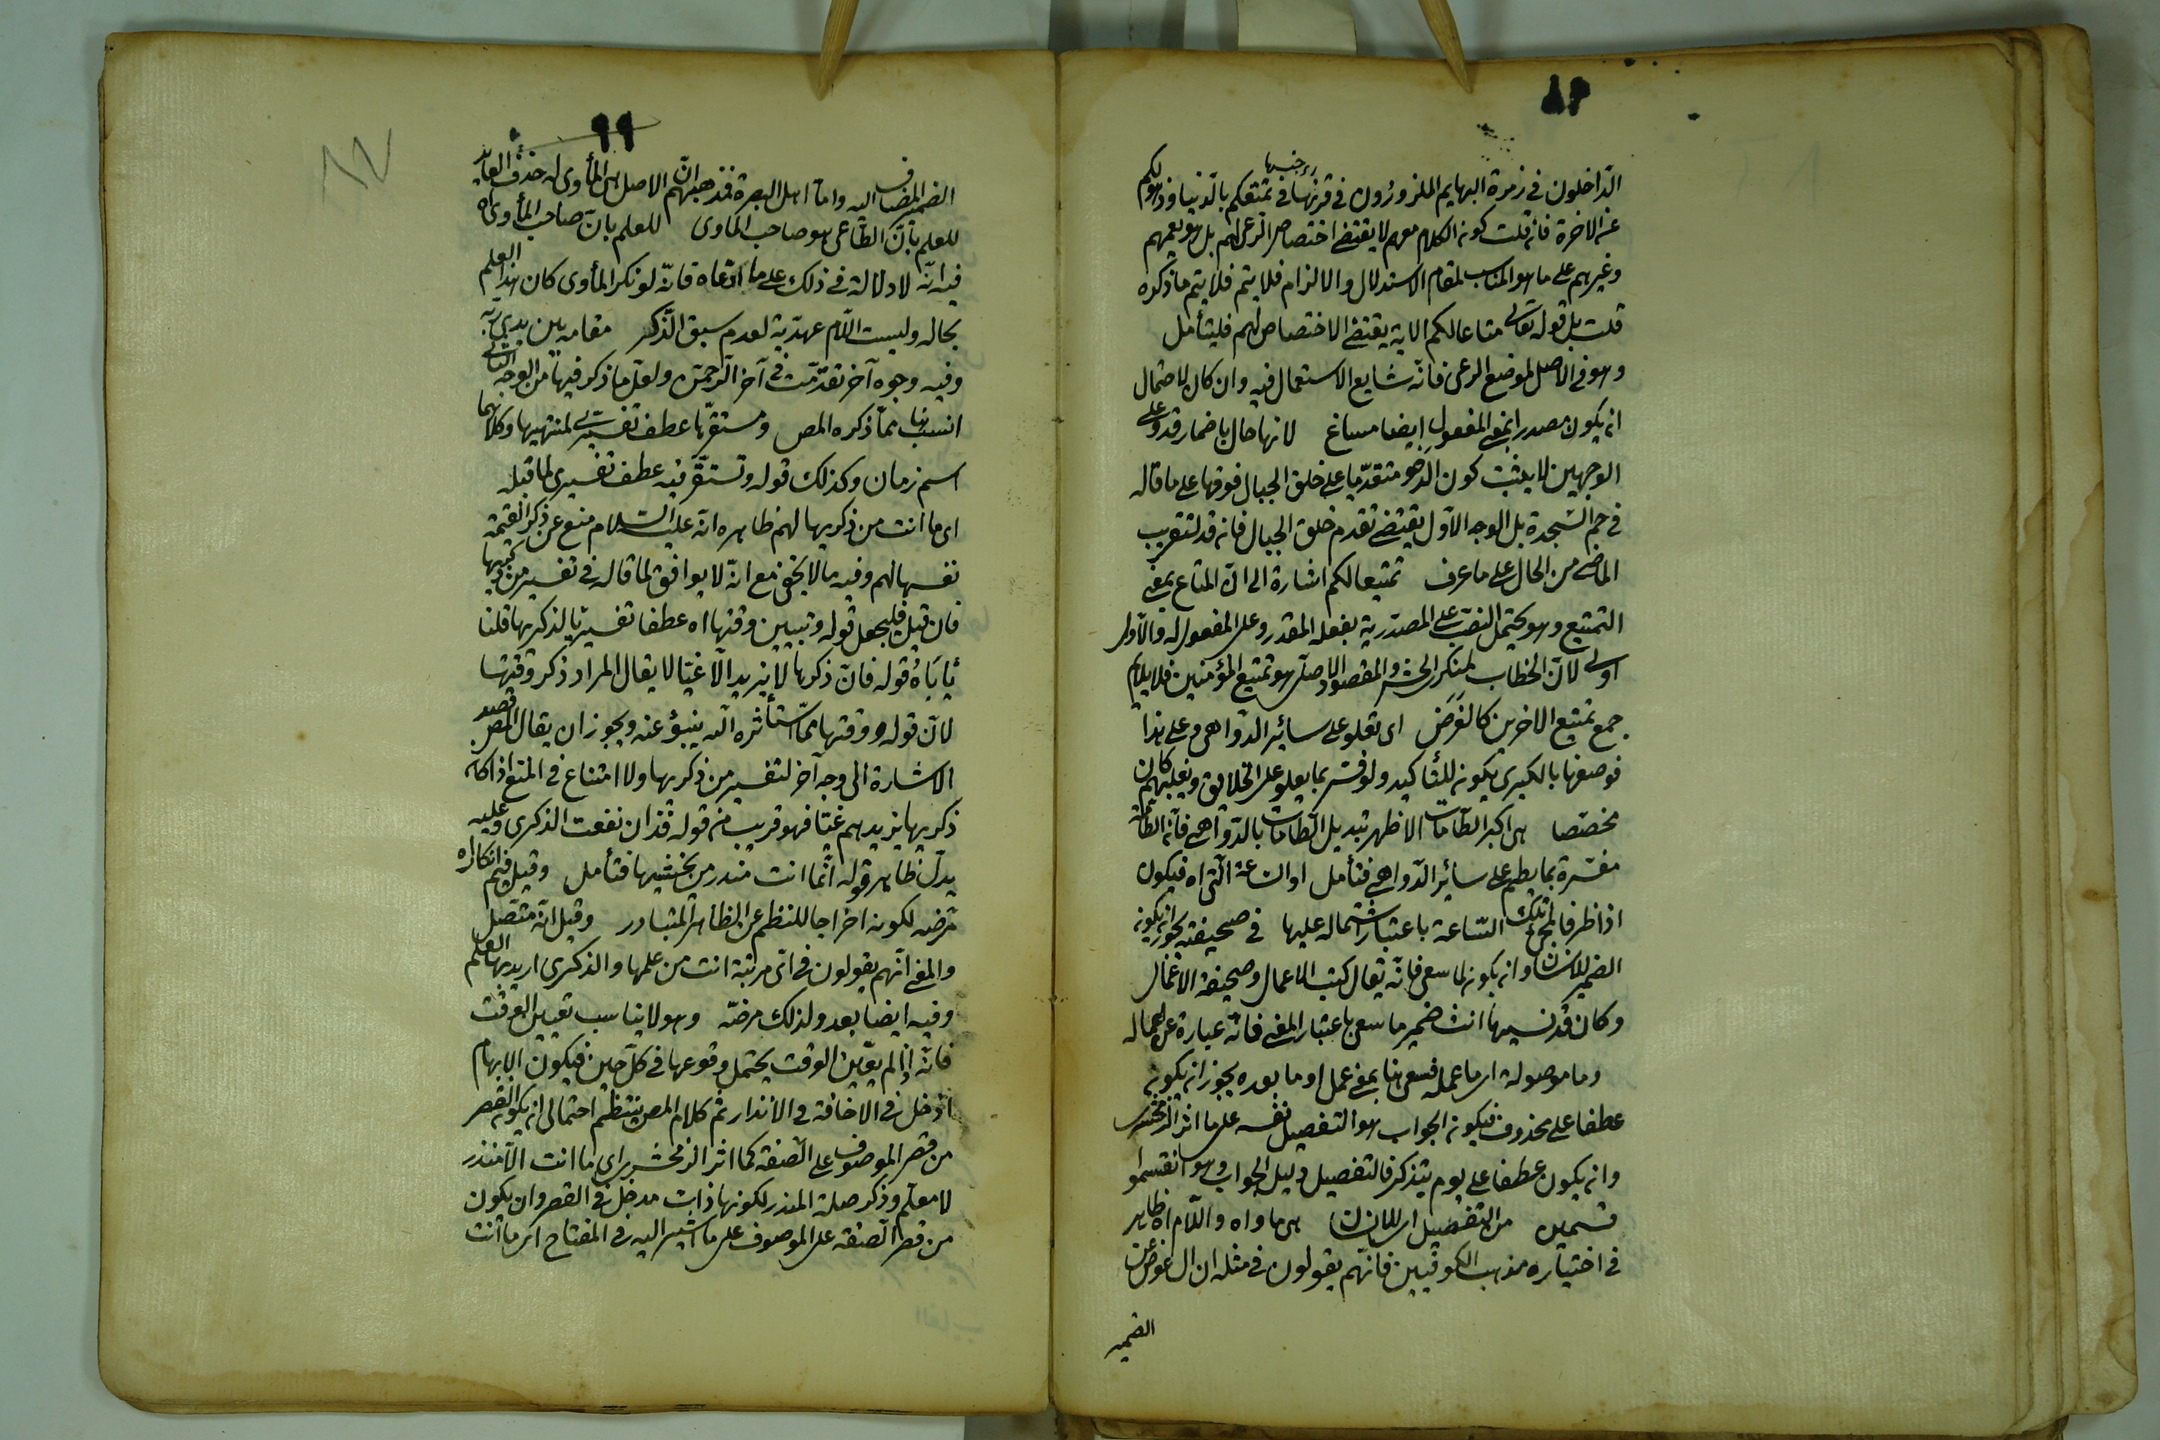 الداخلون في زمرة البهايم الملزوزون في قرنها في تمتعكم بالدنيا وذهولكم
عن الاخرة فان قلت كون الكلام معهم لا يقتضي اختصاص الرعي لهم بل هو يعمهم
وغيرهم على ما هو المناسب لمقام الاستدلال والالزام فلا يتم فلا يتم ما ذكره
قلت بل قوله تعالى متاعا لكم الاية يقتضي الاختصاص لهم فليتأمل
وهو في الاصل لموضع الرعي فانه شايع الاستعمال فيه وان كان لاحتمال
ان يكون مصدرا بمعنى المفعول ايضا مساغ لانها حال باضمار قد وعلى
الوجهين لا يثبت كون الدحو متقدما على خلق الجبال فوقها على ما قاله
في حم السجدة بل الوجه الاول يقتضي تقدم خلق الجبال فان قد لتقريب
الماضي من الحال على ما عرف تمتيعا لكم اشارة الى ان المتاع بمعنى
التمتيع وهو يحتمل النصب على المصدرية بفعله المقدر وعلى المفعول له والاول
اولى لان الخطاب لمنكري الحشر والمقصود الاصلي هو تمتيع المؤمنين فلا يلايم
جمع تمتيع الاخرين كالغرض اي تعلو على سائر الدواهي وعلى هذا
فوصفها بالكبرى يكون للتأكيد ولو فسر بما يعلو على الخلايق ويغلبهم كان
مخصصا هي اكبر الطامات الاظهر تبديل الطامات بالدواهي فان الطامة
مفسرة بما يطم على سائر الدواهي فتأمل او الساعة التي اه فيكون
اذا ظرفا لمجئ تلك الساعة باعتبار اشتماله عليها في صحيفته يجوز ان يكون
الضمير للانسان وان يكون لما سعى فانه يقال كتب الاعمال وصحيفة الاعمال
وكان قد نسيها انث ضمير ما سعى باعتبار المعنى فانه عبارة عن اعماله
وما موصولة اي ما عمله فسعى هنا بمعنى عمل او ما بعده يجوز ان يكون
عطفا على محذوف فيكون الجواب هو التفصيل نفسه على ما اثر الزمخشري
وان يكون عطفا على يوم يتذكر فالتفصيل دليل الجواب وهو انقسموا
قسمين من التفصيل اي للانسان هي ماواه واللام اه ظاهر
في اختياره مذهب الكوفيين فانهم يقولون في مثله ان ال عوض عن
الضمير
٩٩
الضمير المضاف اليه واما اهل البصرة فمذهبهم ان الاصل هي المأوى له حذف العايد
للعلم بأن الطاغي هو صاحب الماوى للعلم بان صاحب المأوى اه
فيه انه لا دلالة في ذلك على ما ادعاه فانه لو نكر المأوى كان هذا العلم
بحاله وليست اللام عهدية لعدم سبق الذكر مقامه بين يدي ربه
وفيه وجوه آخر تقدمت في آخر الرحمن ولعل ما ذكر فيها من الوجه الثاني
انسب هنا مما ذكره المص ومستقرها عطف تفسيري لمنتهيها وكلاهما
اسم زمان وكذلك قوله وتستقر فيه عطف تفسيري لما قبله
اي ما انت من ذكريها لهم ظاهره انه عليه السلام منع عن ذكر القيمة
نفسها لهم وفيه ما لا يخفى مع انه لا يوافق لما قاله في تفسير من ذكريها
فان قيل فليجعل قوله وتبيين وقتها اه عطفا تفسيريا لذكريها قلنا
يأباه قوله فان ذكرها لا يزيد الا غيا لا يقال المراد ذكر وقتها
لان قوله ووقتها مما استأثره الله ينبؤ عنه ويجوز ان يقال قصد المص
الاشارة الى وجه آخر لتفسير من ذكريها ولا امتناع في المنع اذا كان
ذكريها يزيدهم غيا فهو قريب من قوله فذكر ان نفعت الذكرى وعليه
يدل ظاهر قوله انما انت منذر من يخشيها فتأمل وقيل فيم انكار اه
مرضه لكونه اخراجا للنظم عن الظاهر المتبادر وقيل انه متصل
والمعنى انهم يقولون في اي مرتبة انت من علمها والذكرى اريد بها العلم
وفيه ايضا بعد ولذلك مرضه وهو لا يناسب تعيين الوقت
فانه اذا لم يعين الوقت يحتمل وقوعها في كل حين فيكون الابهام
ادخل في الاخافة والانذار ثم كلام المص ينتظم احتمالي ان يكون القصر
من قصر الموصوف على الصفة كما اثر الزمخشري اي ما انت الا منذر
لا معلم وذكر صلة المنذر لكونها ذات مدخل في القصر وان يكون
من قصر الصفة على الموصوف على ما اشير اليه في المفتاح اي ما انت